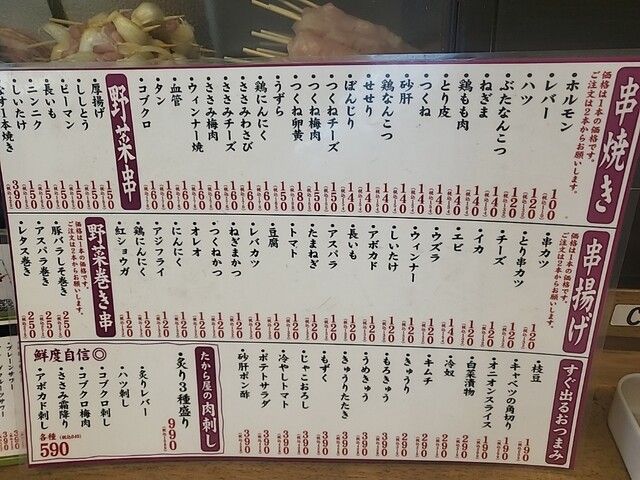 串焼き
価格は1本の価格です。
ご注文は2本からお願いします。
・ホルモン 100
・レバー 120
・ハツ 120
・ぶたなんこつ 240
・ねぎま 140
・鶏もも肉 140
・とり皮 140
・つくね 140
・砂肝 140
・鶏なんこつ 140
・せせり 140
・ぼんじり 140
・つくねチーズ
・つくね梅肉
・つくね卵黄 180
・うずら 150
・鶏にんにく 150
・ささみわさび 160
・ささみチーズ 160
・ささみ梅肉 160
・ウィンナー焼 160
・血管
・タン
・コブクロ
野菜串
・厚揚げ 150
・ししとう 150
・ピーマン 150
・長いも 150
・ニンニク 150
・しいたけ
なす1本焼き 390
串揚げ
価格は1本の価格です。
ご注文は2本からお願いします。
・串カツ 120
・とり串カツ 120
・チーズ 120
・イカ 120
・エビ 140
・ウズラ 120
・ウィンナー 120
・しいたけ 120
・アボカド 120
・長いも 120
・アスパラ 120
・たまねぎ 120
・トマト 120
・豆腐 120
・レバカツ 120
・ねぎまかつ 120
・つくねかつ 120
・オレオ 120
・にんにく 120
・アジフライ 120
・鶏にんにく 120
・紅ショウガ 120
野菜巻き串
価格は1本の価格です。
ご注文は2本からお願いします。
・豚バラしそ巻き 250
・アスパラ巻き 250
・レタス巻き 250
すぐ出るおつまみ
・枝豆 190
・キャベツの角切り 190
・オニオンスライス 190
・白菜漬物 290
・冷奴 290
・キムチ 290
・きゅうり 290
・もろきゅう 390
・うめきゅう 390
・きゅうりたたき 390
・もずく 390
・じゃこおろし 390
・冷やしトマト 390
・ポテトサラダ 390
・砂肝ポン酢 390
たから屋の肉刺し
・炙り3種盛り 990
鮮度自信◎
・炙りレバー
・ハツ刺し
・コブクロ刺し
・コブクロ梅肉
・ささみ霜降り
・アボカド刺し
各種
590